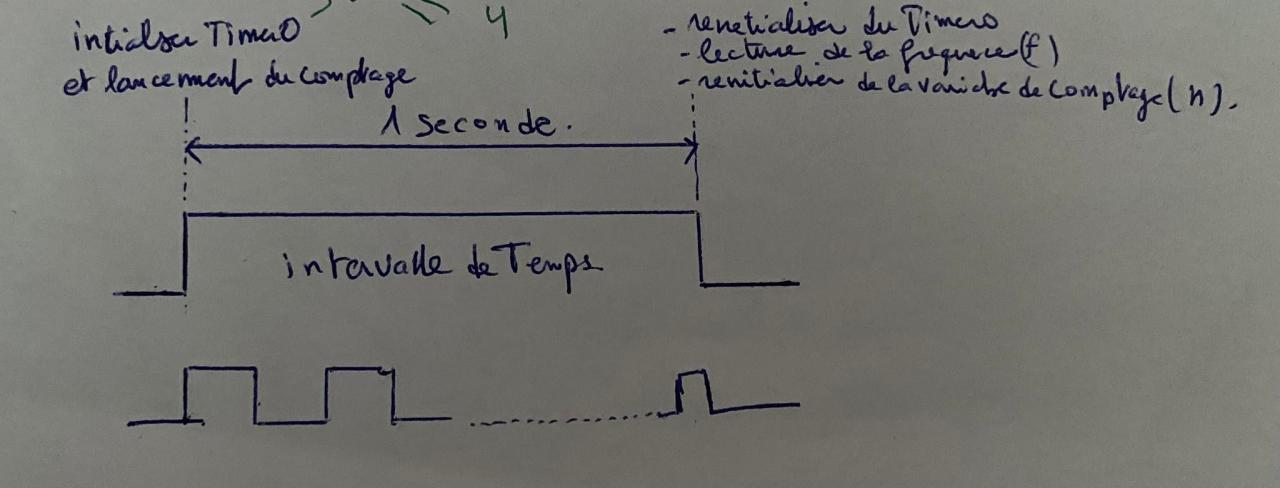 4
intialser Timer0
et lancement du comptage
- renetialiser du Timer0
- lecture de la frequence (f)
- renitialier de la variable de comptage (n).
1 seconde.
intervalle de Temps